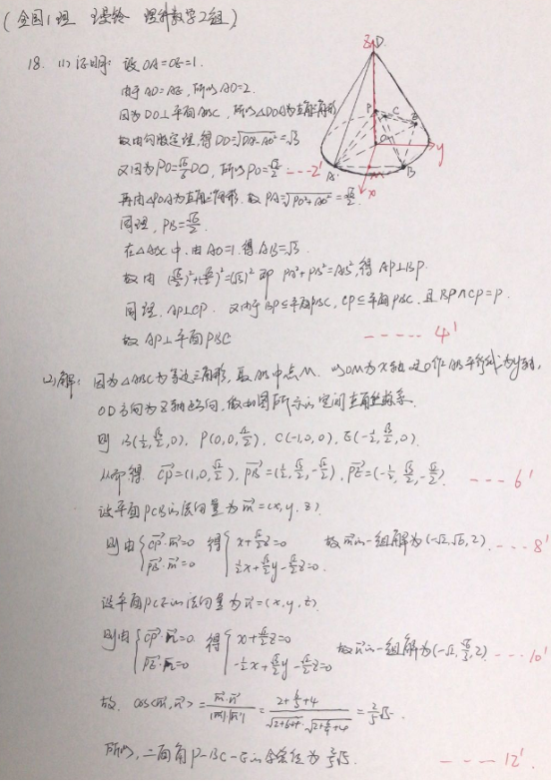 (全国1理 理科数学2组)
18. (1) 证明: 设OA=OE=1.
由于AD=AE, 所以AD=2.
因为DO⊥平面ABC, 所以△DOA为直角三角形
故由勾股定理, 得DO=√(DA²-AO²)=√3
又因为PO=√6/6DO, 所以PO=√2/2 ---2'
再由△POA为直角三角形, 故PA=√(PO²+AO²)=√6/2.
同理, PB=√6/2.
在△ABC中, 由AO=1, 得AB=√3.
故由(√6/2)²+(√6/2)²=(√3)² 即 PA²+PB²=AB², 得AP⊥BP.
同理, AP⊥CP. 又由于BP⊆平面PBC, CP⊆平面PBC, 且BP∩CP=P.
故AP⊥平面PBC ----- 4'
(2)解: 因为△ABC为等边三角形, 取AB中点M. 以OM为x轴 过O作AB平行线为y轴,
OD方向为z轴方向, 做如图所示的空间直角坐标系.
则 B(1/2,√3/2,0), P(0,0,√2/2), C(-1,0,0), E(-1/2,√3/2,0).
从而得 CP=(1,0,√2/2), PB=(1/2,√3/2,-√2/2), PE=(-1/2,√3/2,-√2/2). --- 6'
设平面PCB的法向量为m=(x,y,z).
则由{CP·m=0 PB·m=0 得{x+√2/2z=0 1/2x+√3/2y-√2/2z=0. 故m的一组解为(-√2,√6,2). --- 8'
设平面PCE的法向量为n=(x,y,z).
则由{CP·n=0 PE·n=0 得{x+√2/2z=0 -1/2x+√3/2y-√2/2z=0 故n的一组解为(-√2,√6/3,2) --- 10'
故 cos<m,n>=m·n/|m||n|=(2+6/3+4)/(√(2+6+4)·√(2+6/9+4))=2/5√5.
所以, 二面角P-BC-E的余弦值为2/5√5. --- 12'
z
D
P
C
E
O
y
A
M
B
x